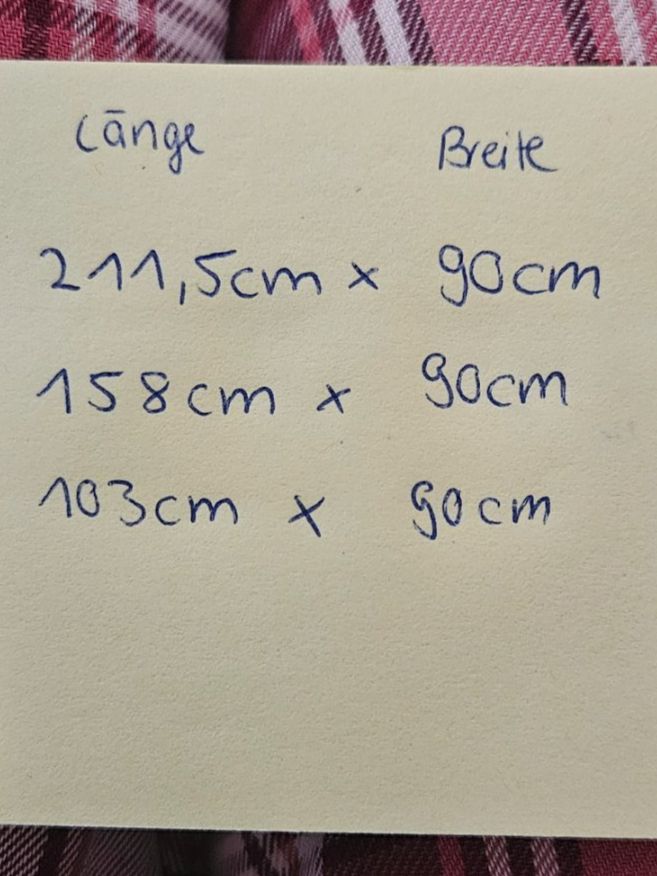 Länge Breite
211,5cm x 90cm
158cm x 90cm
103cm x 90cm